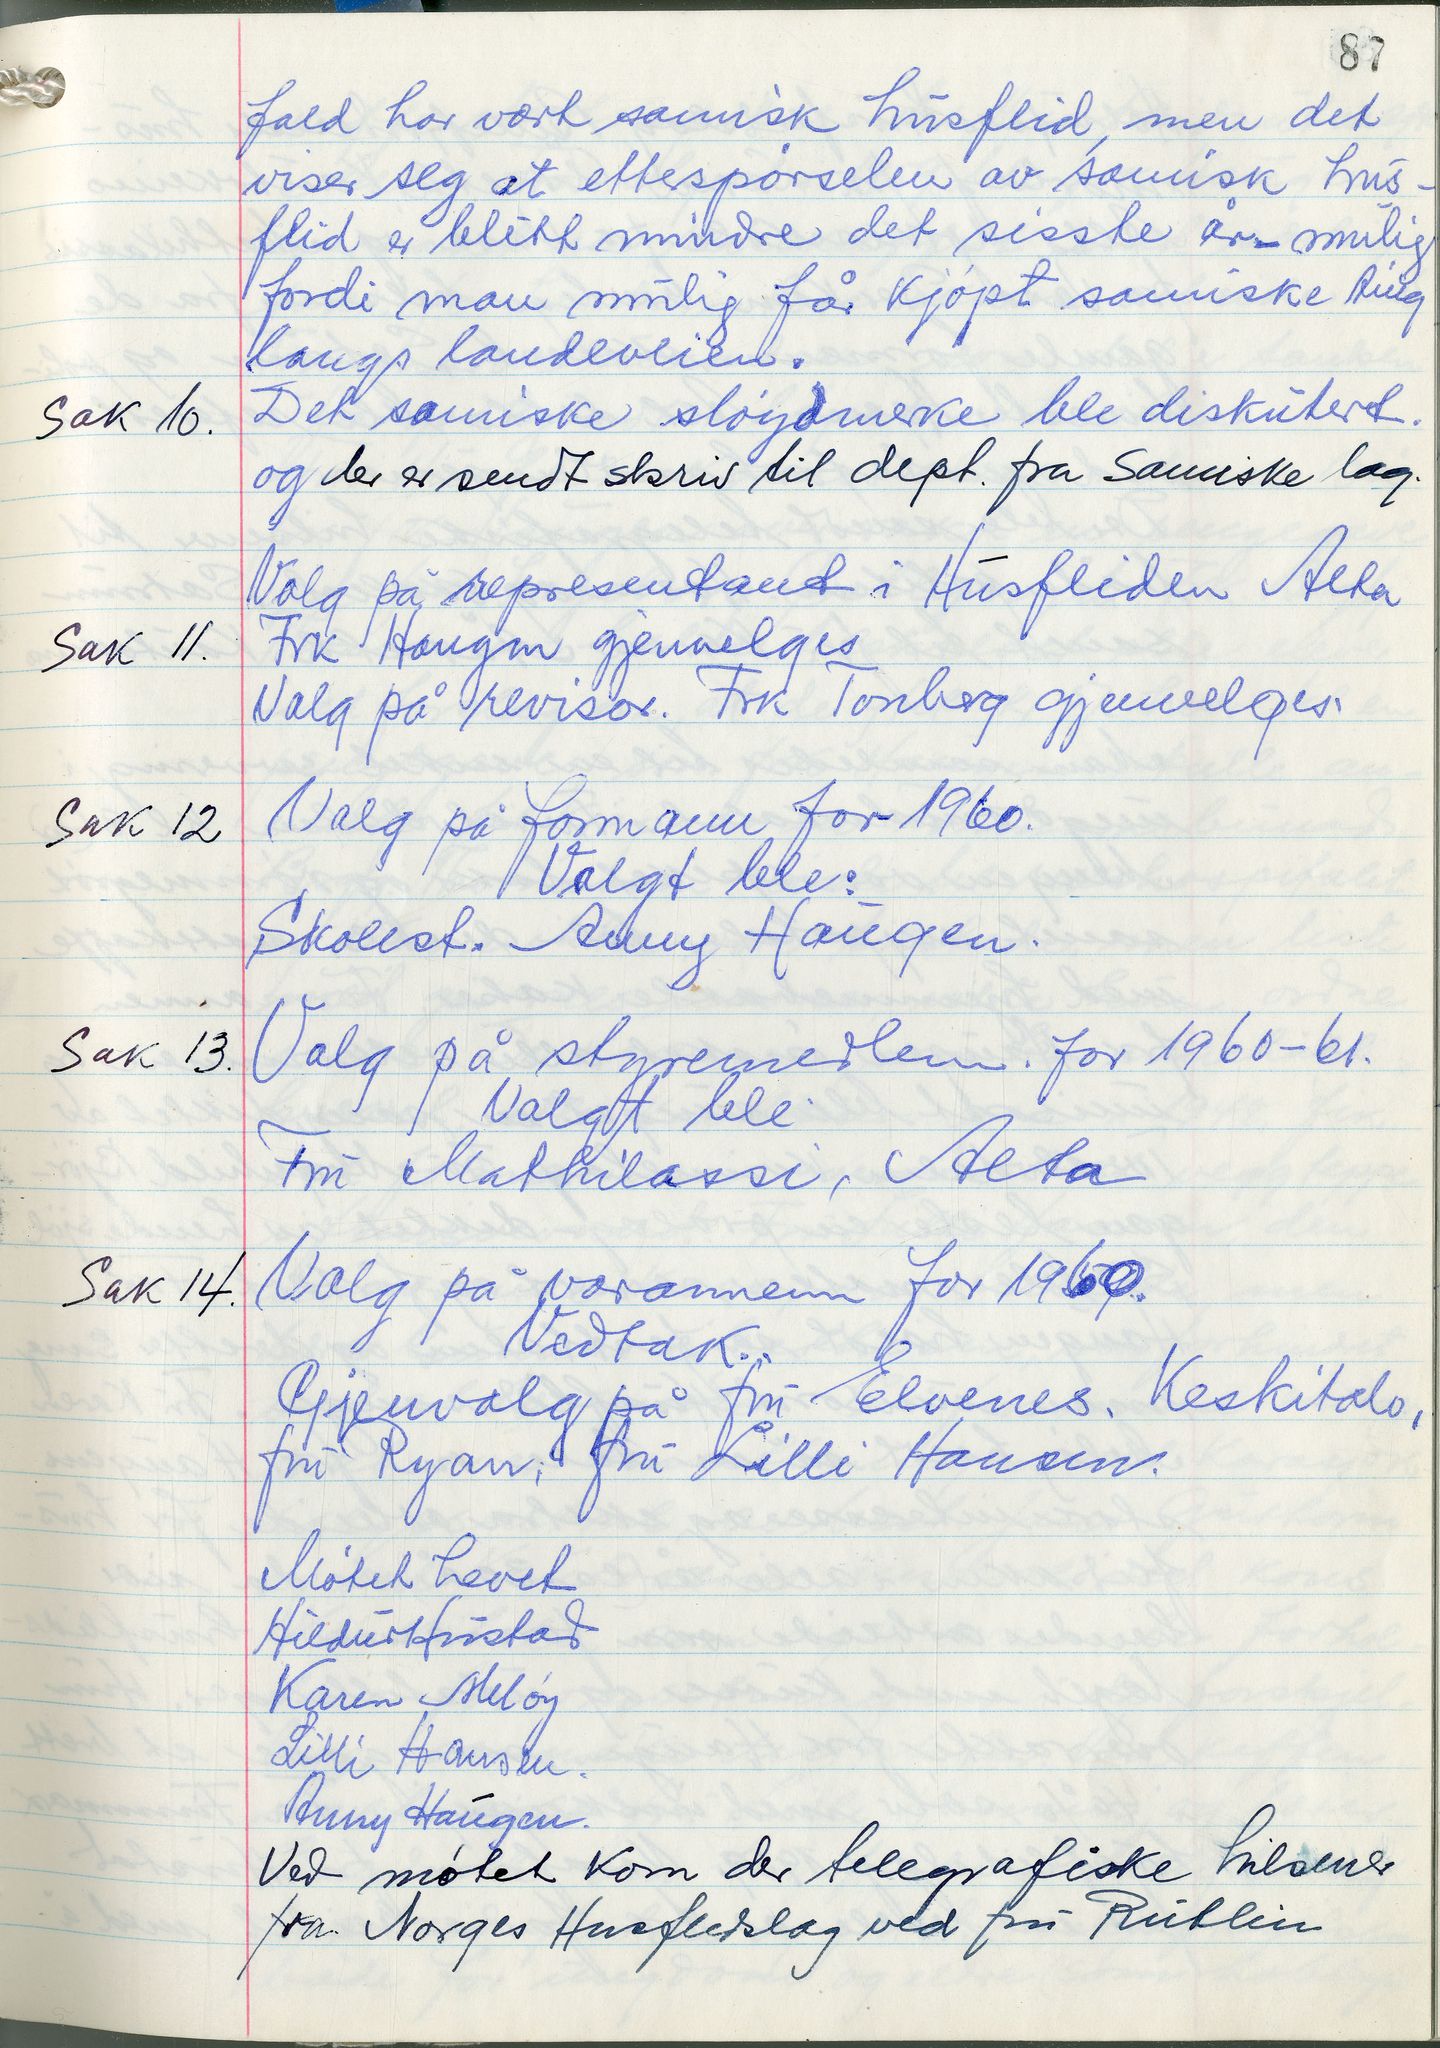 87
fald har vært samisk husflid, men det
viser seg at etterspørselen av samisk hus-
flid er blitt mindre det sisste år - mulig
fordi man mulig får kjøpt samiske ting
langs landeveien.
Sak 10. Det samiske sløydmerke ble diskutert.
og der er sendt skriv til dept. fra Samiske lag.
Valg på representant i Husfliden Alta
Sak 11. Frk Haugen gjenvelges
Valg på revisor. Frk Tonberg gjenvelges.
Sak 12 Valg på formann for 1960.
Valgt ble:
Skolest. Anny Haugen.
Sak 13. Valg på styremedlem. for 1960-61.
Valgt ble
Fru Mathilassi, Alta
Sak 14. Valg på varamenn for 1960.
Vedtak.
Gjenvalg på fru Elvenes. Keskitalo,
fru Ryan, fru Lilli Hansen.
Møtet hevet
Hildur Hustad
Karen Meløy
Lilli Hansen.
Anny Haugen.
Ved møtet kom der telegrafiske hilsener
fra Norges Husflidslag ved fru Rüblin